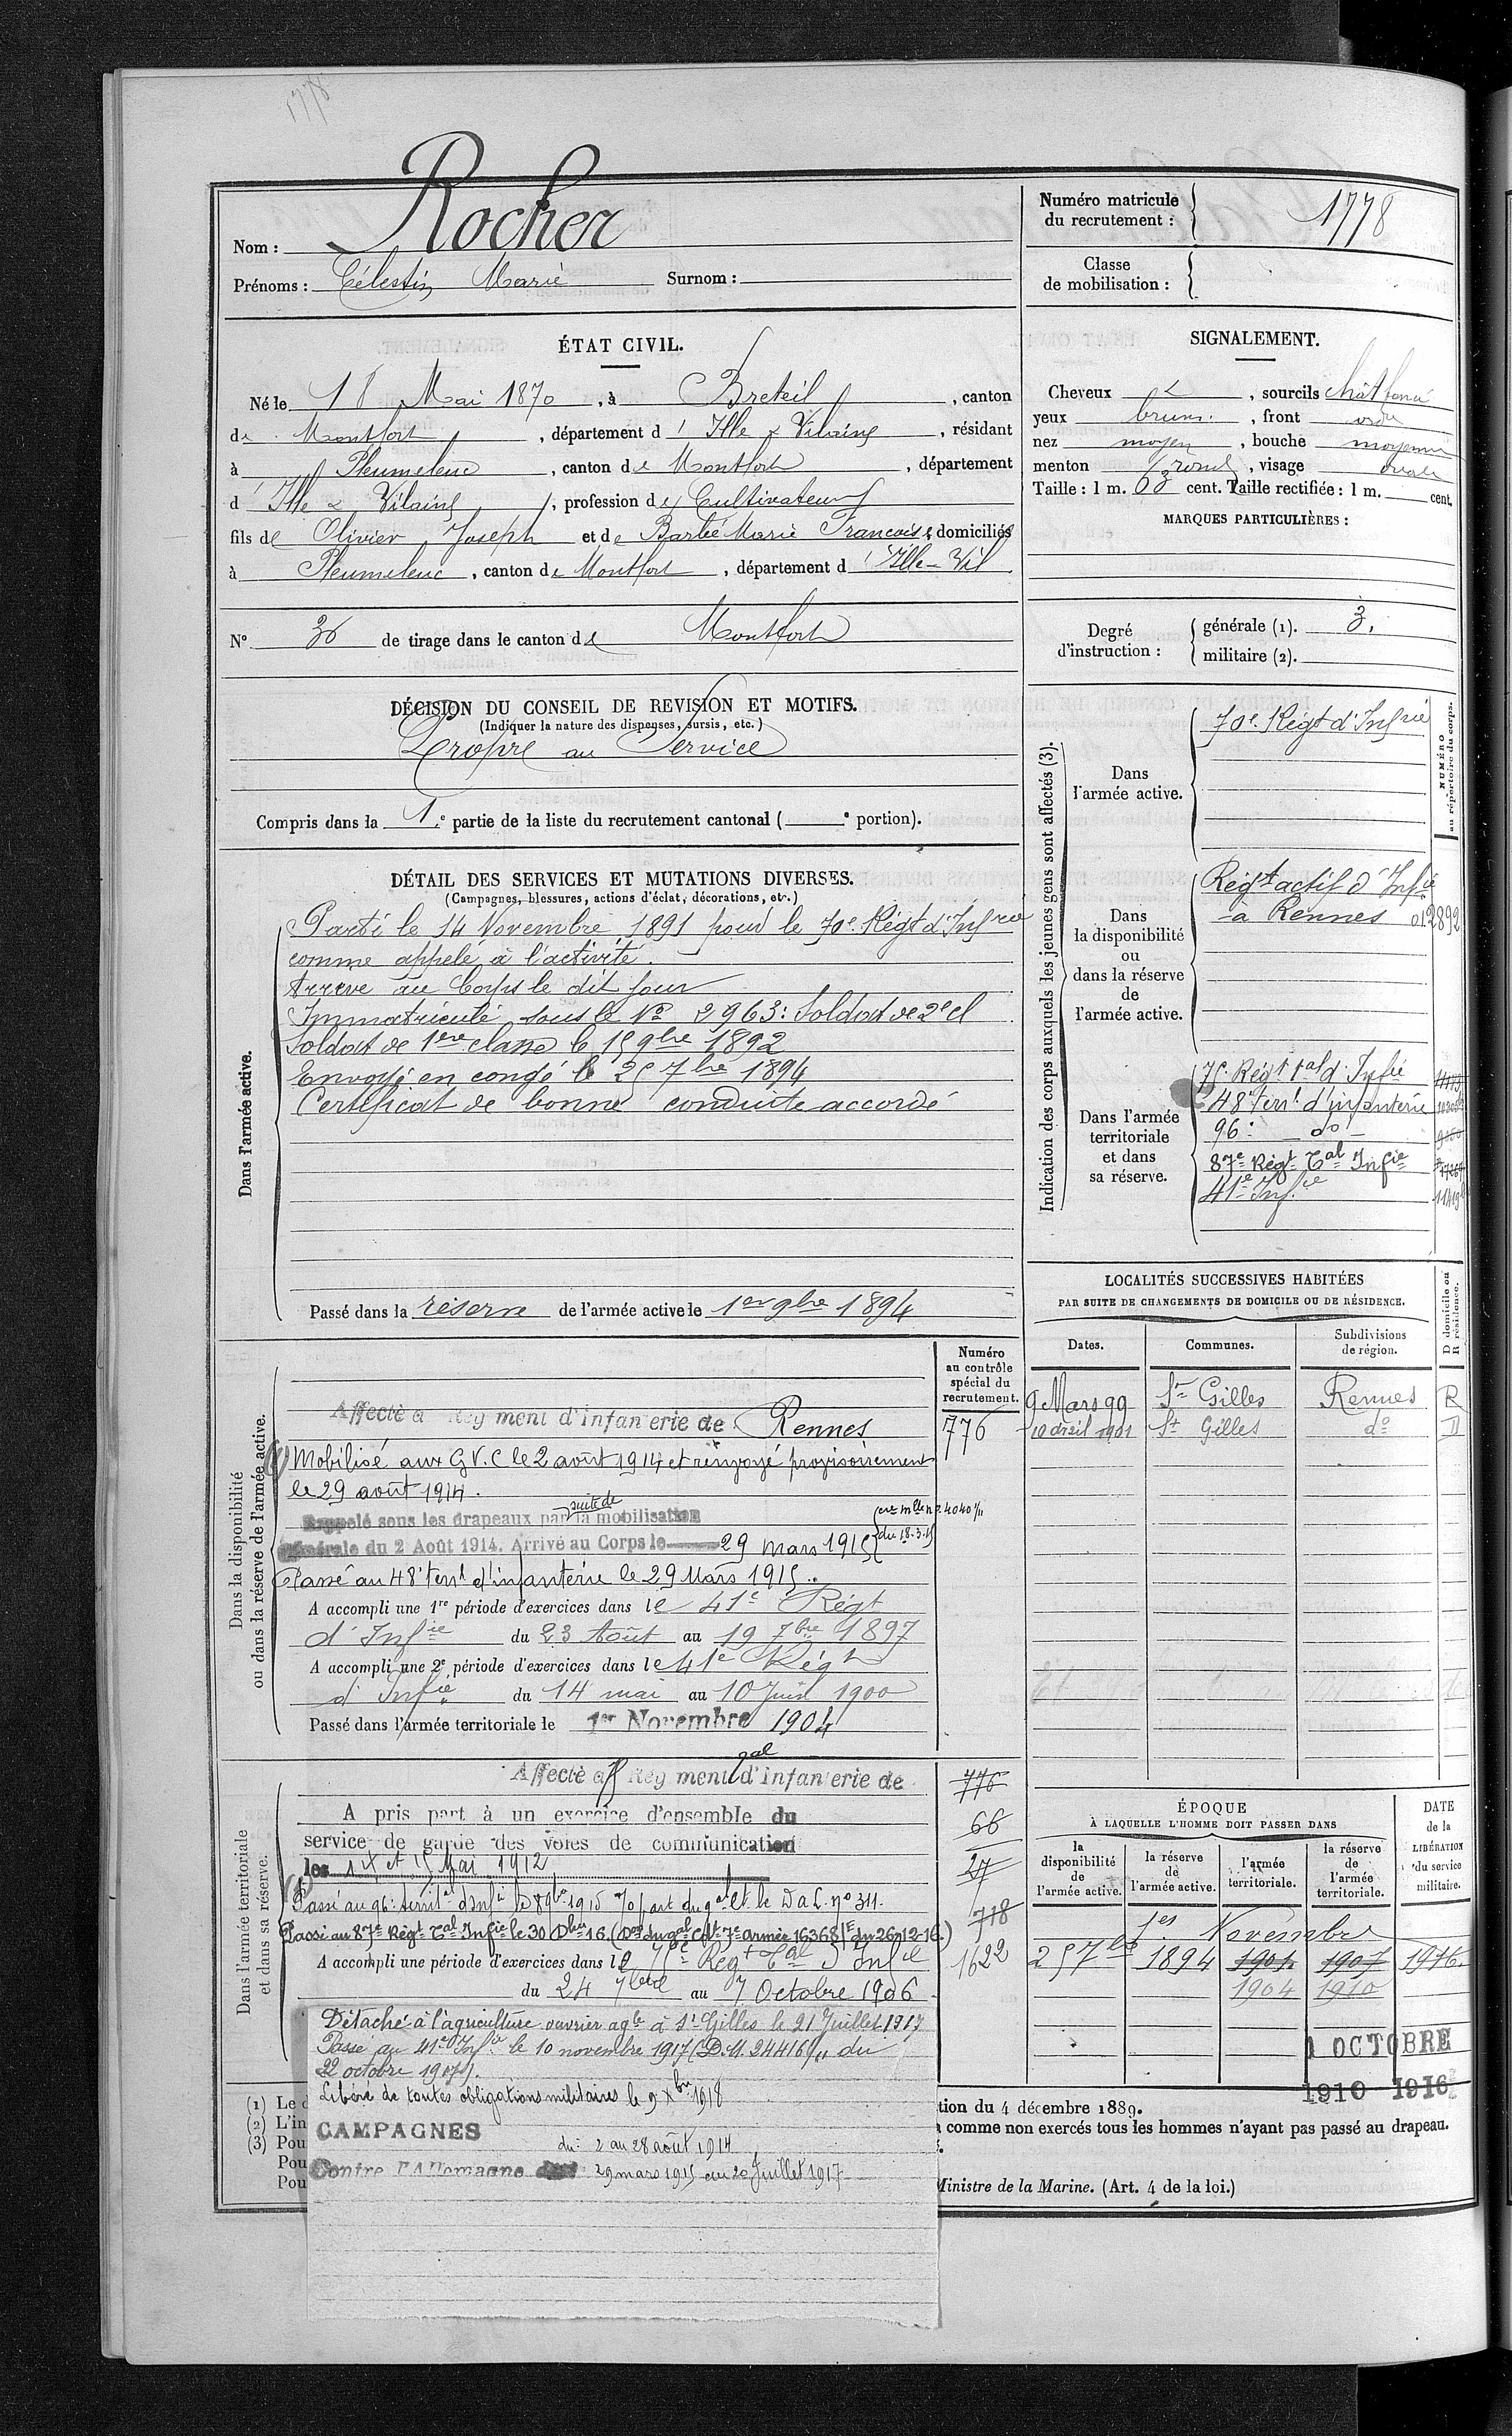 1778
Nom : Rocher
Prénoms : Célestin Marie Surnom :
Numéro matricule du recrutement : 1778
Classe de mobilisation :
ÉTAT CIVIL.
Né le 18 Mai 1870, à Breteil, canton
de Montfort, département d'Ille & Vilaine, résidant
à Pleumeleuc, canton de Montfort, département
d'Ille & Vilaine, profession de Cultivateur
fils de Olivier Joseph et de Barbé Marie Françoise domiciliés
à Pleumeleuc, canton de Montfort, département d'Ille-Vil
SIGNALEMENT.
Cheveux &, sourcils chât foncé
yeux bruns, front ordre
nez moyen, bouche moyenne
menton rond, visage ovale
Taille : 1 m. cent. Taille rectifiée : 1 m. cent.
MARQUES PARTICULIÈRES :
N° 36 de tirage dans le canton de Montfort
Degré d'instruction : générale (1). 3.
militaire (2).
DÉCISION DU CONSEIL DE REVISION ET MOTIFS.
(Indiquer la nature des dispenses, sursis, etc.)
Propre au Service
Compris dans la 1re partie de la liste du recrutement cantonal ( e portion).
DÉTAIL DES SERVICES ET MUTATIONS DIVERSES.
(Campagnes, blessures, actions d'éclat, décorations, etc.)
Dans l'armée active.
Parti le 14 Novembre 1891 pour le 70e Régt d'Infrie
comme appelé à l'activité.
Arrivé au Corps le dit jour
Immatriculé sous le No 2963 : Soldat de 2e cl
Soldat de 1ere classe le 15 9bre 1892
Envoyé en congé le 25 7bre 1894
Certificat de bonne conduite accordé
Passé dans la réserve de l'armée active le 1er 9bre 1894
Indication des corps auxquels les jeunes gens sont affectés (3).
NUMÉRO au répertoire du corps.
Dans l'armée active.
70e Régt d'Infrie
Dans la disponibilité ou dans la réserve de l'armée active.
Régt actif d'Infie
à Rennes 012892
Dans l'armée territoriale et dans sa réserve.
75e Régt tal d'Infie
48e terrl d'infanterie
96e do
87e Régt Tal Infie
41e Infie
LOCALITÉS SUCCESSIVES HABITÉES
PAR SUITE DE CHANGEMENTS DE DOMICILE OU DE RÉSIDENCE.
Dates. Communes. Subdivisions de région. D domicile ou R résidence.
9 Mars 99 St Gilles Rennes R
10 avril 1901 St Gilles do D
Dans la disponibilité ou dans la réserve de l'armée active.
Numéro au contrôle spécial du recrutement.
Affecté a Régiment d'Infanterie de Rennes 776
Mobilisé aux G.V.C le 2 août 1914 et renvoyé provisoirement
le 29 août 1914.
Rappelé sous les drapeaux par suite de la mobilisation
générale du 2 Août 1914. Arrivé au Corps le 29 mars 1915 (cre mlle n° 4040 1/11 du 18.3.15)
Passé au 48e terrl d'infanterie le 29 Mars 1915.
A accompli une 1re période d'exercices dans le 41e Régt
d'Infie du 23 Août au 19 7bre 1897
A accompli une 2e période d'exercices dans le 41e Régt
d'Infie du 14 mai au 10 Juin 1900
Passé dans l'armée territoriale le 1er Novembre 1904
Dans l'armée territoriale et dans sa réserve.
Affecté au Régiment tal d'Infanterie de 776
A pris part à un exercice d'ensemble du 66
service de garde des voies de communication 27
les 14 et 15 Mai 1912
Passé au 96e territal d'Infie le 8 9bre 1915 no 311. 718
Passé au 87e Régt Tal Infie le 30 Dbre 16. (Don du gal Cdt 7e armée 16368/E du 26-12-16.)
A accompli une période d'exercices dans le 75e Régt Tal d'Infie 1622
du 24 7bre au 7 Octobre 1906
Détaché à l'agriculture ouvrier agle à St Gilles le 21 Juillet 1917
Passé au 41e Infie le 10 novembre 1917 (D.M. 24416 1/11 du
22 octobre 1917).
Libéré de toutes obligations militaires le 9 Xbre 1918
CAMPAGNES
du 2 au 28 août 1914
Contre l'Allemagne 29 mars 1915 au 20 Juillet 1917
ÉPOQUE
À LAQUELLE L'HOMME DOIT PASSER DANS
la disponibilité de l'armée active. la réserve de l'armée active. l'armée territoriale. la réserve de l'armée territoriale.
DATE de la LIBÉRATION du service militaire.
1er Novembre
25 7bre 1894 1904 1907 1916.
1904 1910
1 OCTOBRE
1910 1916
(1) Le
(2) L'in
(3) Pou
Pou
Pou
tion du 4 décembre 1889.
comme non exercés tous les hommes n'ayant pas passé au drapeau.
Ministre de la Marine. (Art. 4 de la loi.)